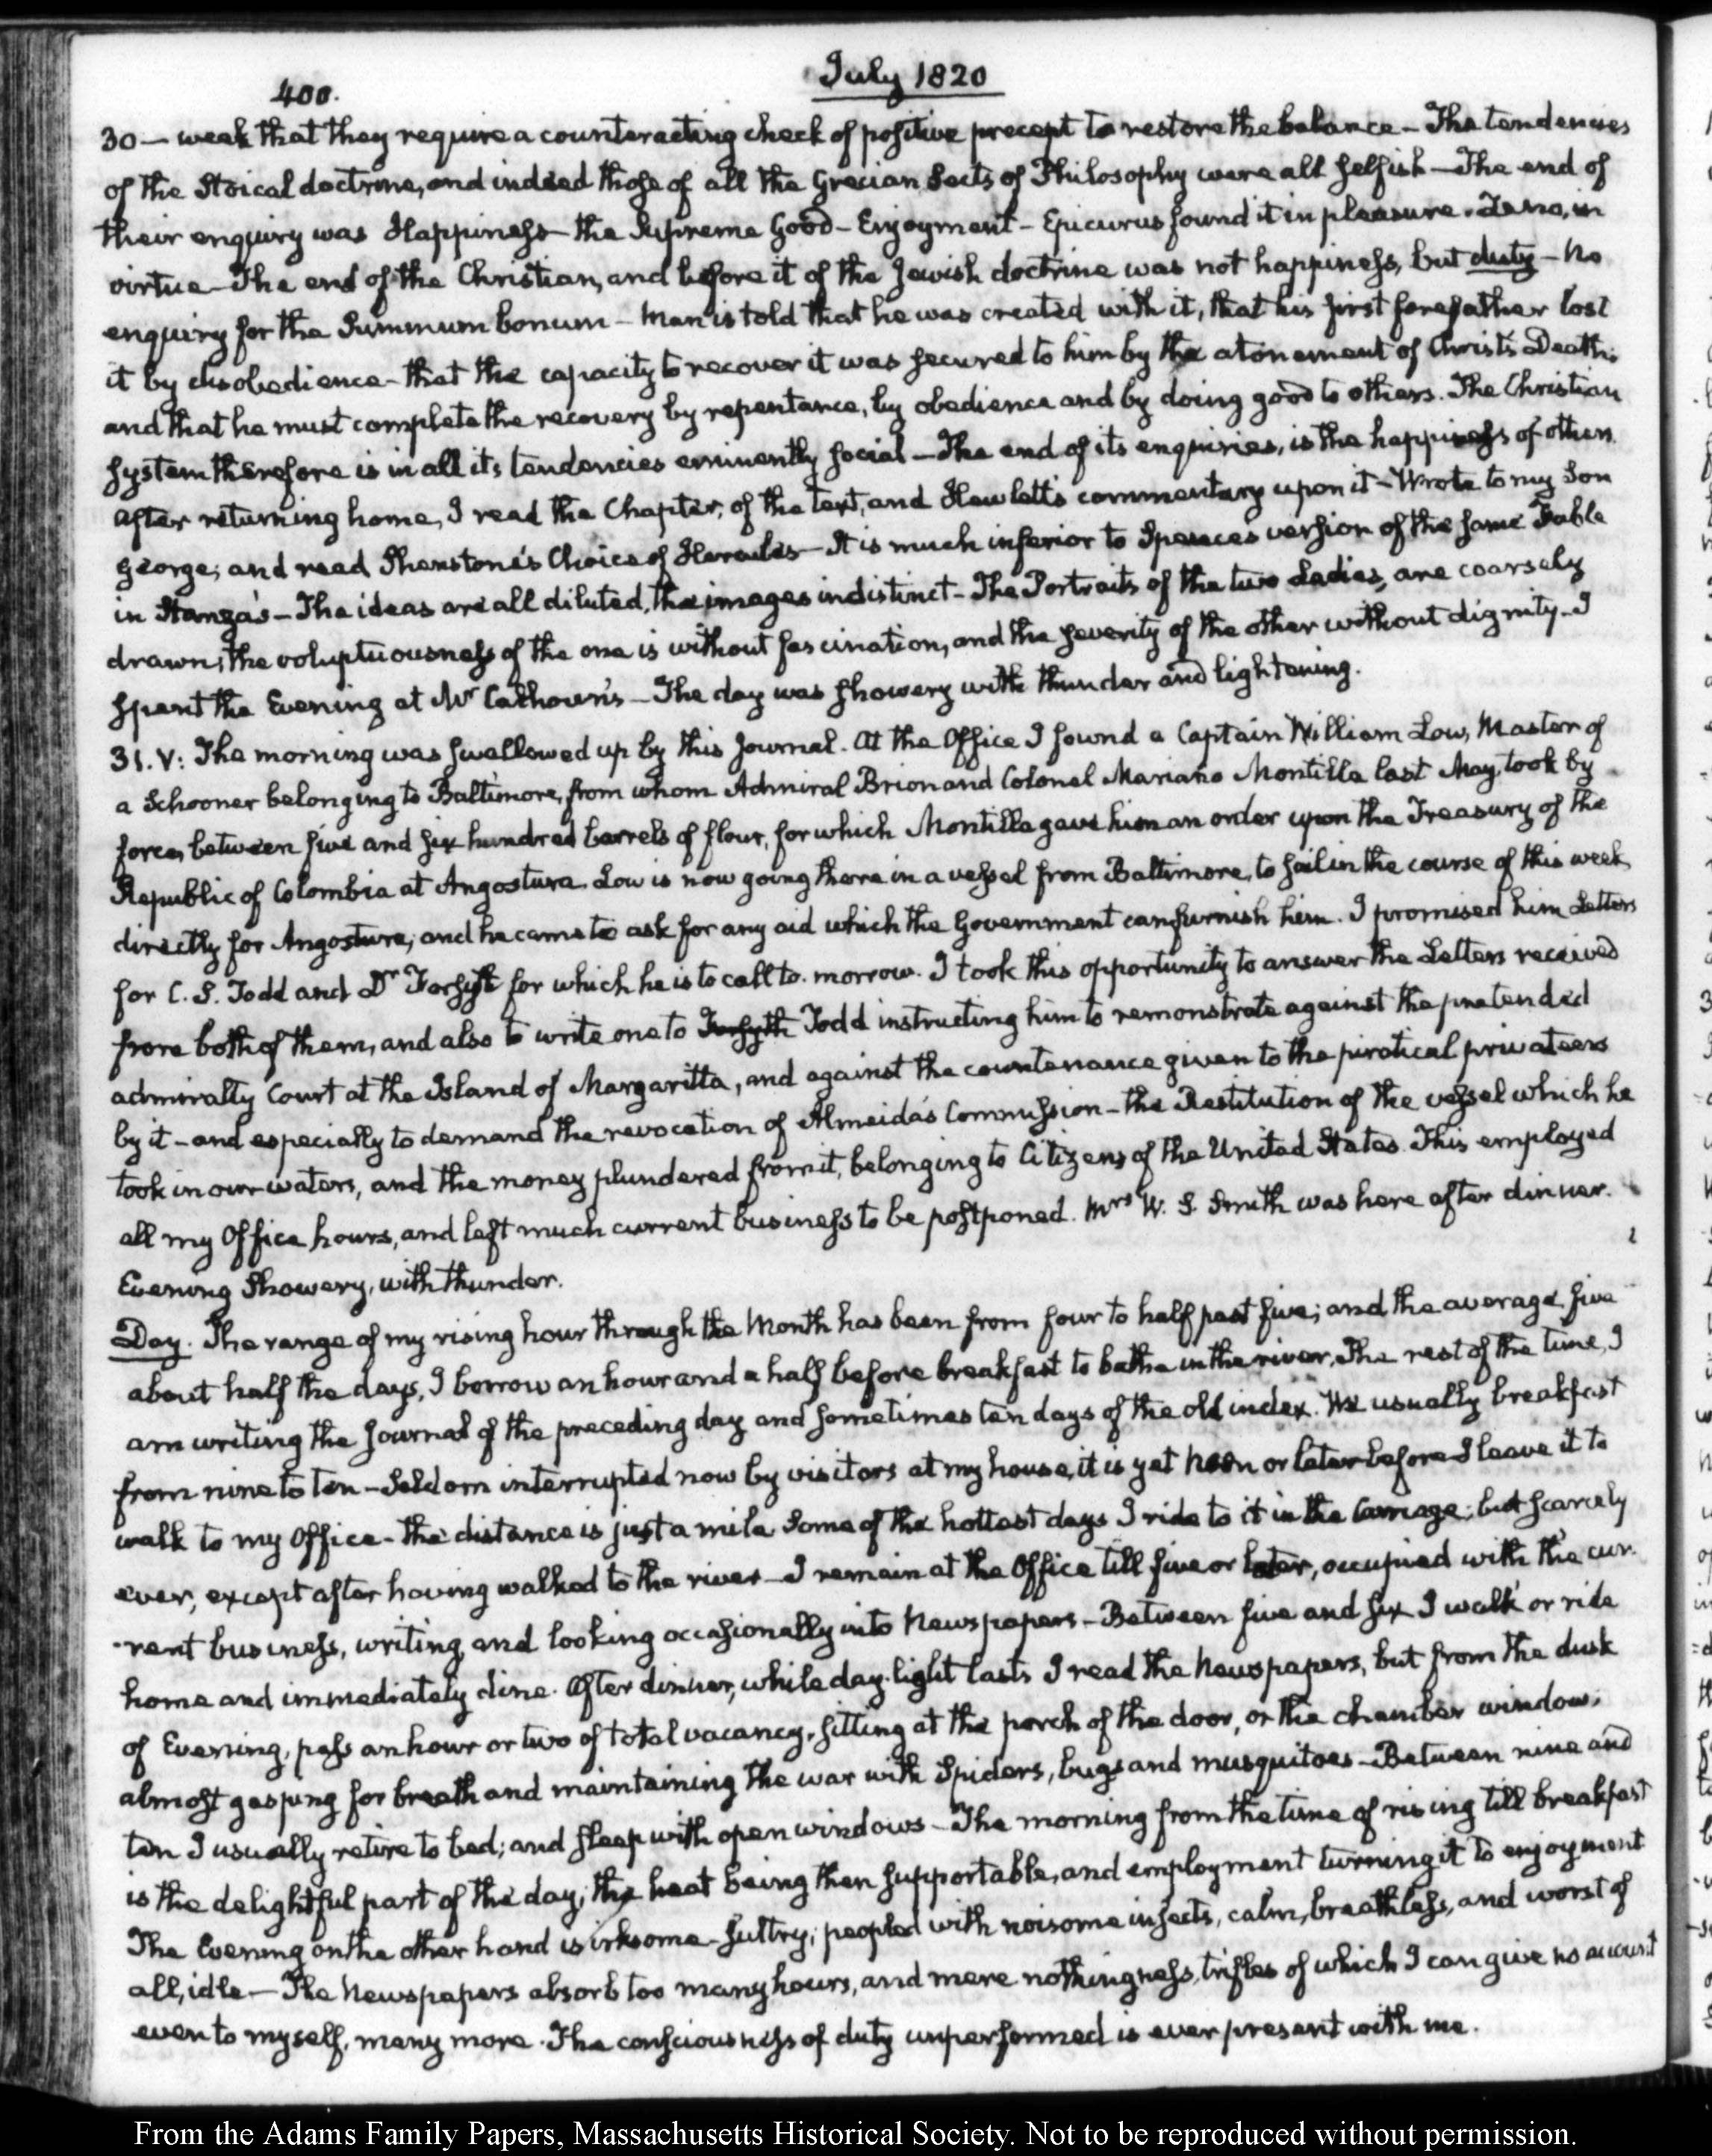 400.
July 1820
30 — weak that they require a counteracting check of positive precept to restore the balance — The tendencies
of the Stoical doctrine, and indeed those of all the Grecian Sects of Philosophy were all selfish — The end of
their enquiry was Happiness — the Supreme Good — Enjoyment — Epicurus found it in pleasure. Zeno, in
virtue — The end of the Christian, and before it of the Jewish doctrine was not happiness, but duty — No
enquiry for the Summum bonum — Man is told that he was created with it, that his first forefather lost
it by disobedience — that the capacity to recover it was secured to him by the atonement of Christ's Death;
and that he must complete the recovery by repentance, by obedience and by doing good to others. The Christian
system therefore is in all its tendencies eminently social — The end of its enquiries, is the happiness of others.
After returning home, I read the Chapter, of the text, and Hewlett's commentary upon it — Wrote to my Son
George; and read Shenstone's Choice of Hercules — It is much inferior to Spence's version of the same Fable
in Stanza's — The ideas are all diluted, the images indistinct — The Portraits of the two Ladies, are coarsely
drawn; the voluptuousness of the one is without fascination, and the severity of the other without dignity — I
spent the Evening at Mr Calhoun's — The day was showery with thunder and lightening.
31. V: The morning was swallowed up by this Journal. At the Office I found a Captain William Low, Master of
a Schooner belonging to Baltimore, from whom Admiral Brion and Colonel Mariano Montilla last May, took by
force, between five and six hundred barrels of flour, for which Montilla gave him an order upon the Treasury of the
Republic of Colombia at Angostura. Low is now going there in a vessel from Baltimore, to sail in the course of this week,
directly for Angostura; and he came to ask for any aid which the Government can furnish him. I promised him Letters
for C. S. Todd and Dr Forsyth for which he is to call to-morrow. I took this opportunity to answer the Letters received
from both of them, and also to write one to Forsyth Todd instructing him to remonstrate against the pretended
admiralty Court at the Island of Margaritta, and against the countenance given to the piratical privateers
by it — and especially to demand the revocation of Almeida's Commission — the Restitution of the vessel which he
took in our waters, and the money plundered from it, belonging to Citizens of the United States. This employed
all my Office hours, and left much current business to be postponed. Mrs W. S. Smith was here after dinner.
Evening Showery, with thunder.
Day. The range of my rising hour through the Month has been from four to half past five; and the average five
about half the days, I borrow an hour and a half before breakfast to bathe in the river, The rest of the time, I
am writing the Journal of the preceding day and sometimes ten days of the old index. We usually breakfast
from nine to ten — Seldom interrupted now by visitors at my house, it is yet Noon or later before I leave it to
walk to my Office — the distance is just a mile. Some of the hottest days I ride to it in the Carriage; but scarcely
ever, except after having walked to the river — I remain at the Office till five or later, occupied with the cur-
-rent business, writing, and looking occasionally into Newspapers — Between five and six I walk or ride
home and immediately dine. After dinner, while day-light lasts I read the Newspapers, but from the dusk
of Evening, pass an hour or two of total vacancy, sitting at the porch of the door, or the chamber window;
almost gasping for breath and maintaining the war with Spiders, bugs and musquitoes — Between nine and
ten I usually retire to bed; and sleep with open windows — The morning from the time of rising till breakfast
is the delightful part of the day; the heat being then supportable, and employment turning it to enjoyment
The Evening on the other hand is irksome — sultry; peopled with noisome insects, calm, breathless, and worst of
all, idle — The Newspapers absorb too many hours, and mere nothingness, trifles of which I can give no account
even to myself, many more. The consciousness of duty unperformed is ever present with me.
From the Adams Family Papers, Massachusetts Historical Society. Not to be reproduced without permission.